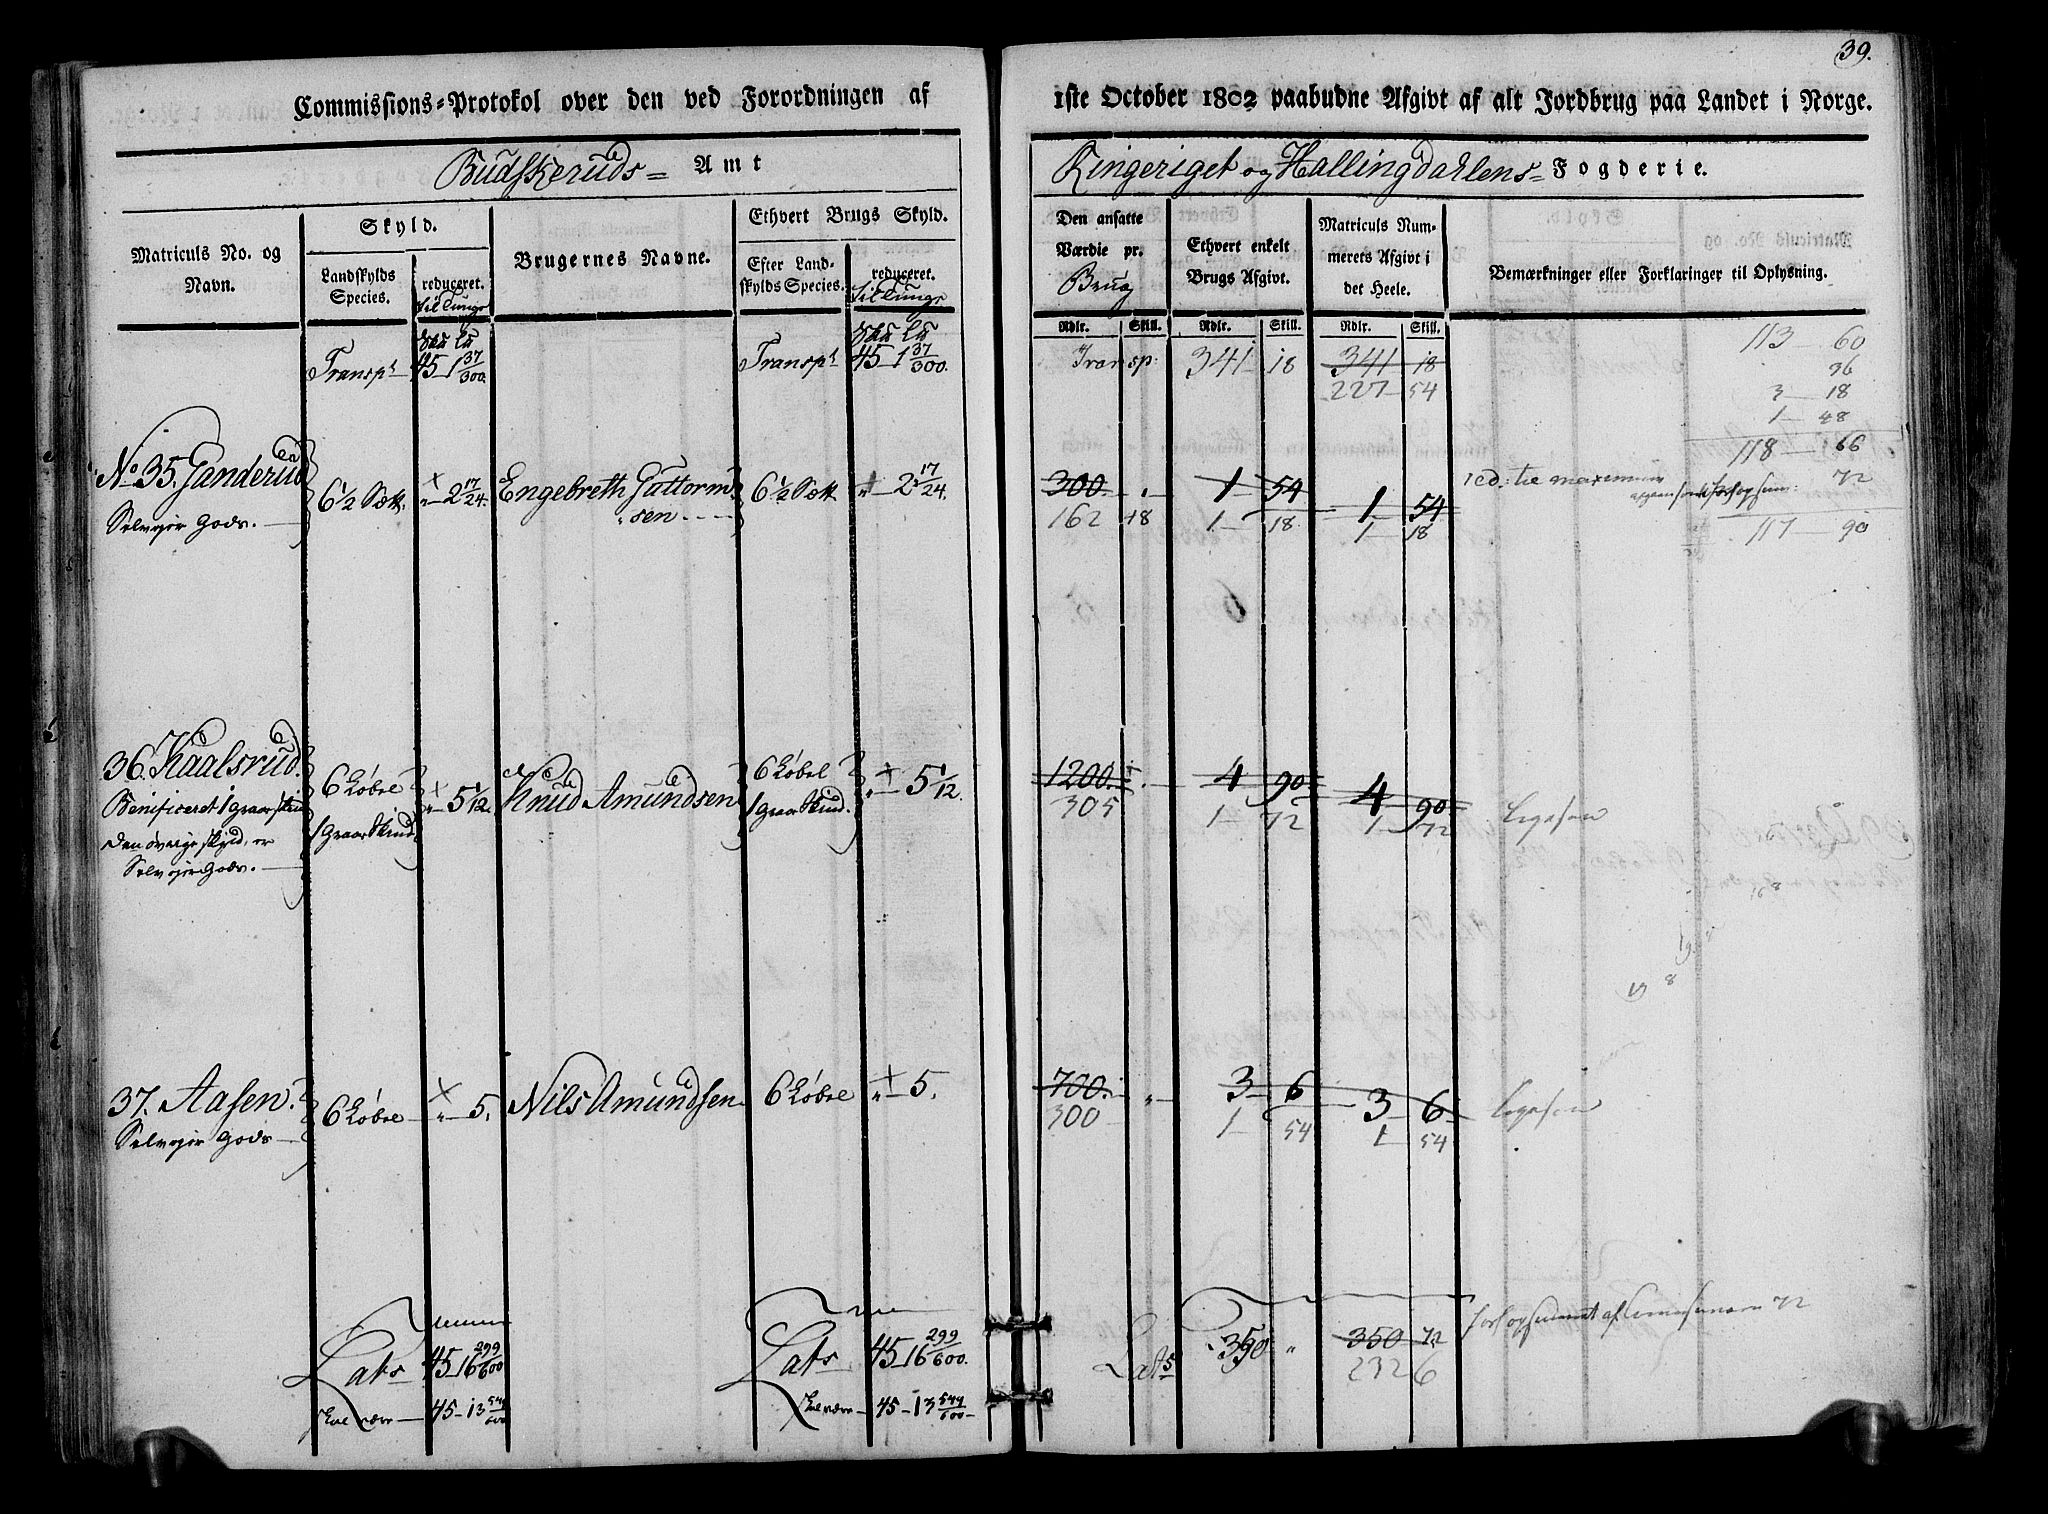 39.
Commissions=Protokol over den ved Forordningen af 1ste October 1802 paabudne Afgivt af alt Jordbrug paa Landet i Norge.
Budskeruds= Amt
Ringeriget og Hallingdahlens= Fogderie.
Matriculs No. og Navn.
Skyld.
Landskylds Species.
reduceret. til Tunge
Brugernes Navne.
Ethvert Brugs Skyld.
Efter Landskylds Species.
reduceret. til Tunge
Den ansatte Værdie pr. Brug
Ethvert enkelt Brugs Afgivt.
Matriculs Nummerets Afgivt i det Heele.
Bemærkninger eller Forklaringer til Oplysning.
Rdlr. Skill. Rdlr. Skill. Rdlr. Skill.
Transpt 45 1 37/300. Transpt 45 1 37/300. Transp: 341 18 341 18
227 54
113 60
36
3 18
1 48
118 66
72
117 90
No 35. Ganderud 6½ Sætt. 2 17/24. Engebreth Guttormsen 6½ Sætt. 2 17/24. 300 1 54 1 54
Selveier Gods. 162 48 1 18 1 18
36. Kaalsrud. 6 Løbe 1 graae Skind 5 1/12. Knud Amundsen 6 Løbe 1 graae Skind. 5 1/12. 1200 4 90 4 90
Benificeret 1 graae Skind 305 1 72 1 72
den øvrige Skyld, er
Selveier Gods.
37. Aasen. 6 Løbe 5. Nils Amundsen 6 Løbe 5. 700 3 6 3 6
Selveier Gods 300 1 54 1 54
Lats 45 16 299/600 Lats 45 16 299/600. Lats 350 350 72
232 6
skal være 45 13 544/600 skal være 45 13 544/600